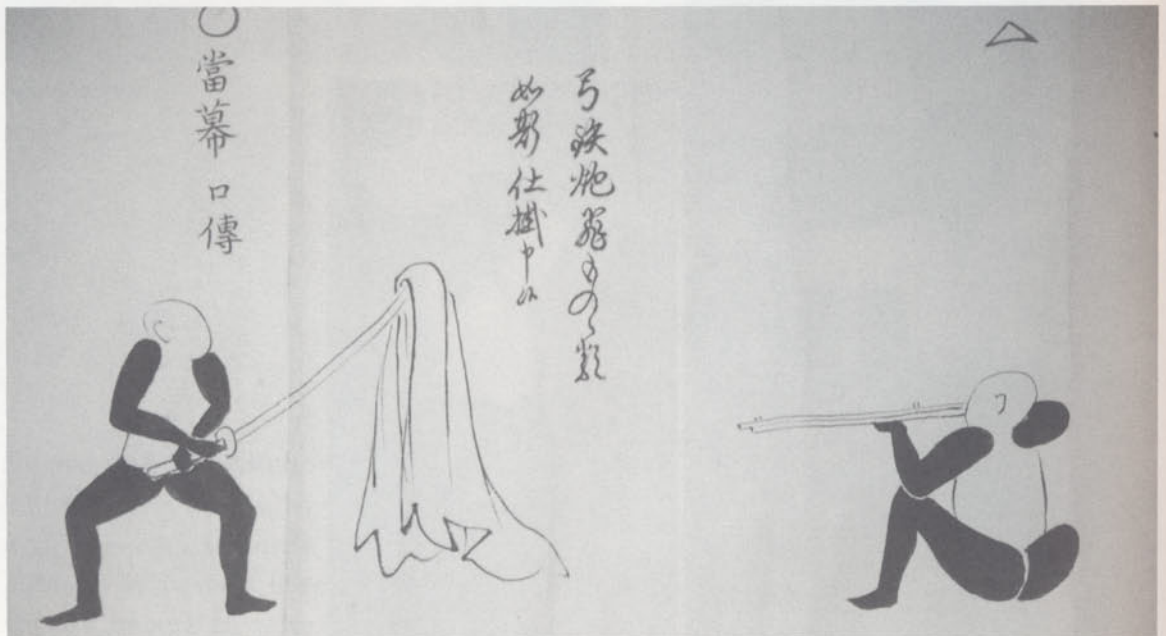 弓鉄炮飛もの類
如斯仕掛申候
當幕 口傳